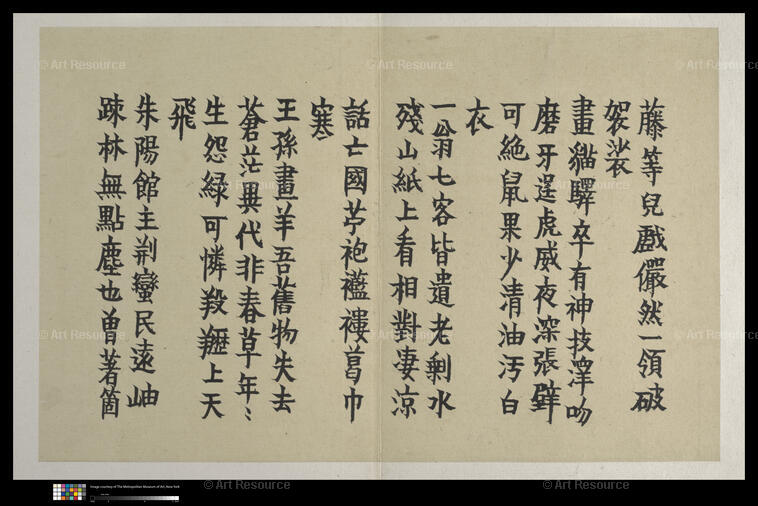 藤等兒戲儼然一領破
袈裟
畫貓驛卒有神技澤吻
磨牙逞虎威夜深張壁
可絶鼠果少清油汚白
衣
一翁七客皆遺老剩水
殘山紙上看相對凄涼
話亡國苧袍襤褸葛巾
寒
王孫畫羊吾舊物失去
蒼茫異代非春草年〻
生怨緑可憐羖䍽上天
飛
朱陽館主荆蠻民遠岫
疎林無點塵也曽著箇
© Art Resource
© Art Resource
© Art Resource
© Art Resource
© Art Resource
© Art Resource
© Art Resource
© Art Resource
Image courtesy of The Metropolitan Museum of Art, New York